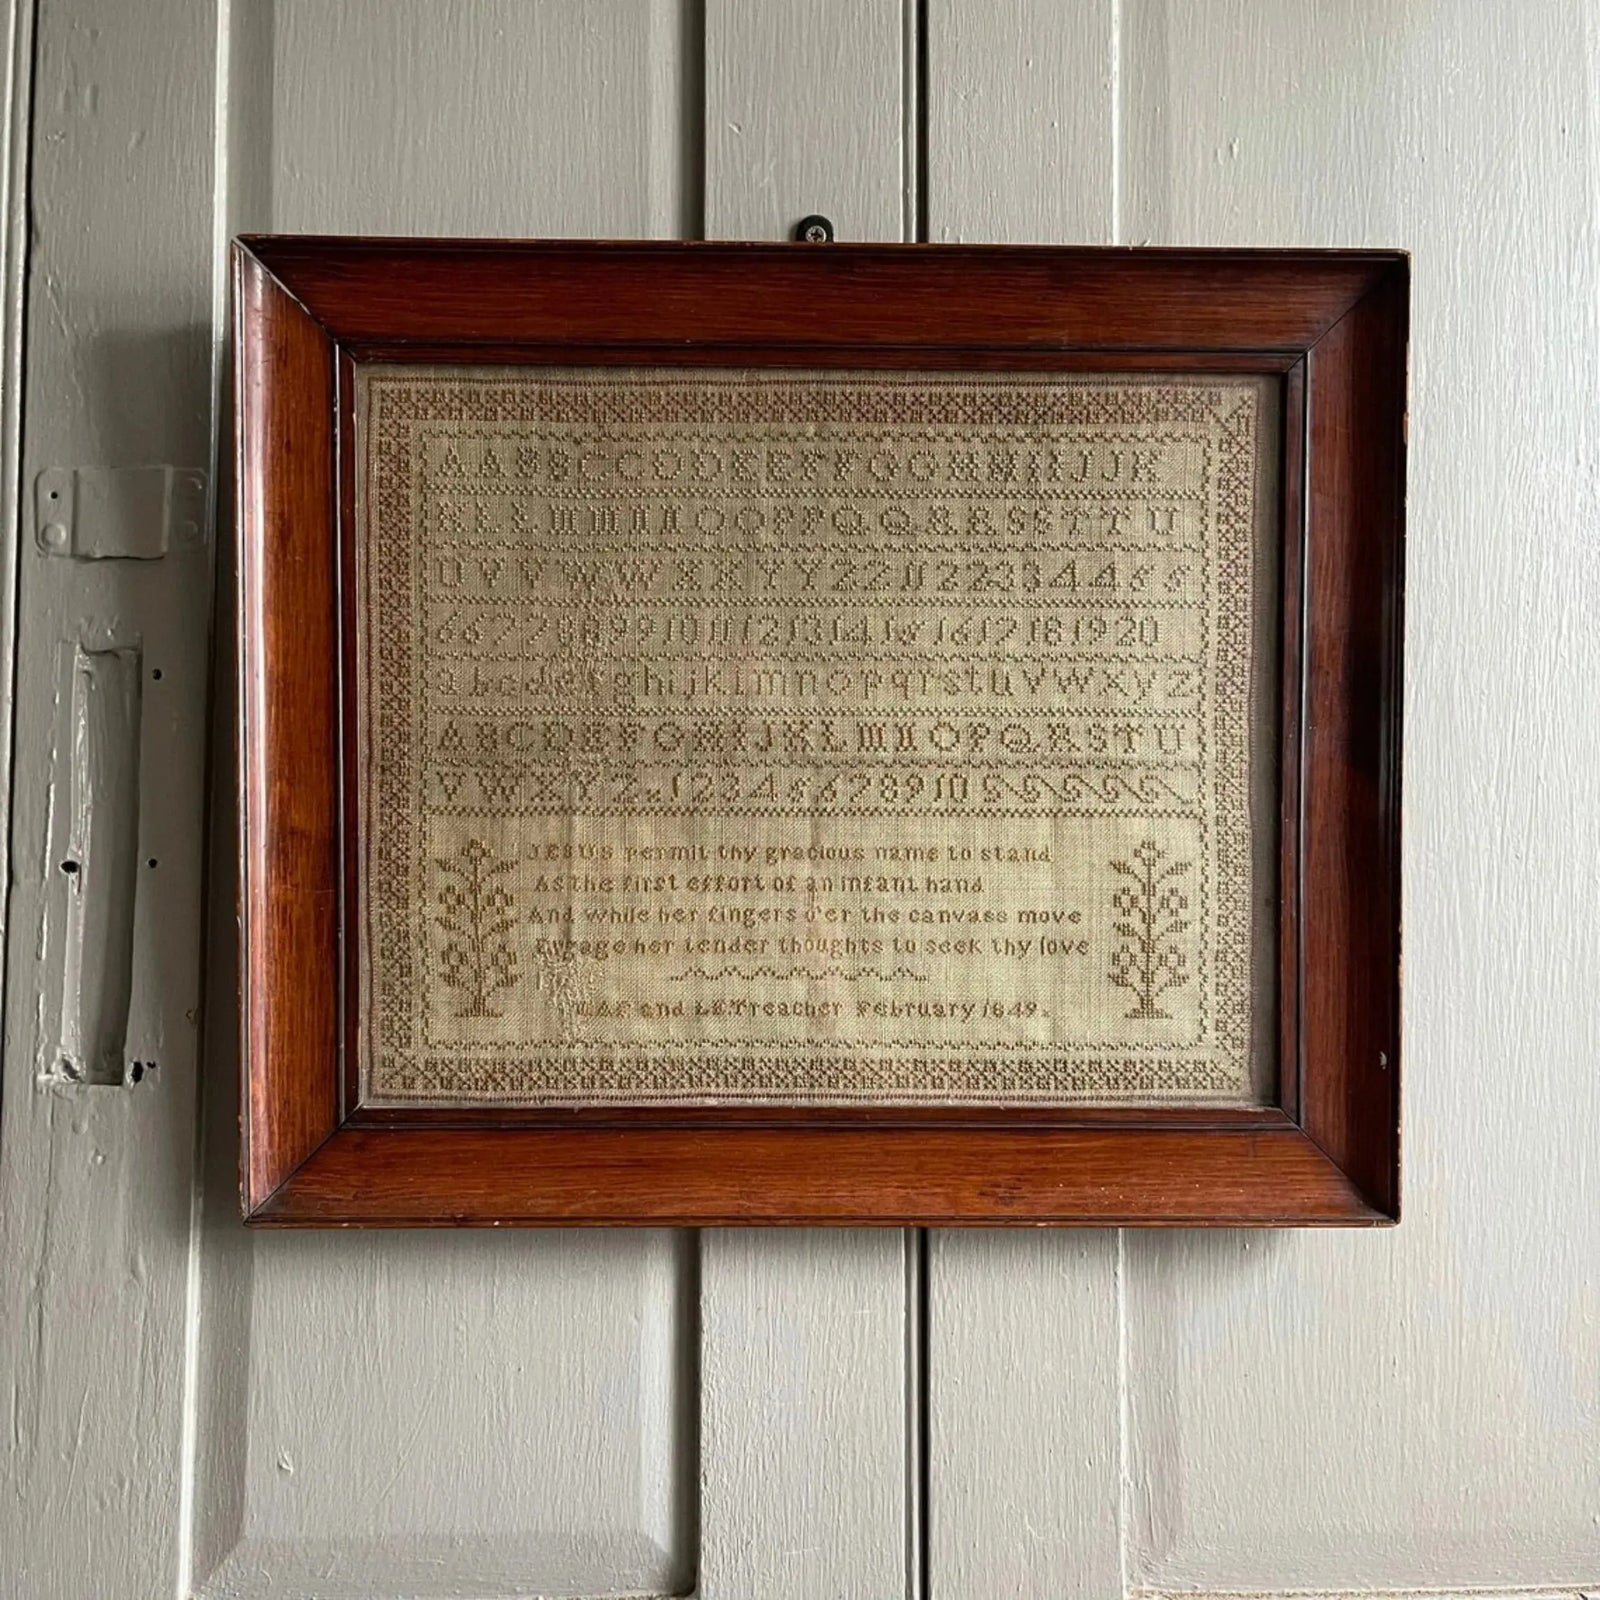 AABBCCDDEEFFGGHHIIJJK
KLLMMNNOOPPQQRRSSTTU
UVVWWXXYYZZ1122334455
667788991011121314151617181920
abcdefghijklmnopqrstuvwxyz
ABCDEFGHIJKLMNOPQRSTU
VWXYZ&12345678910
JESUS permit thy gracious name to stand
As the first effort of an infant hand
And while her fingers o'er the canvass move
Engage her tender thoughts to seek thy love
and Treacher February 1849